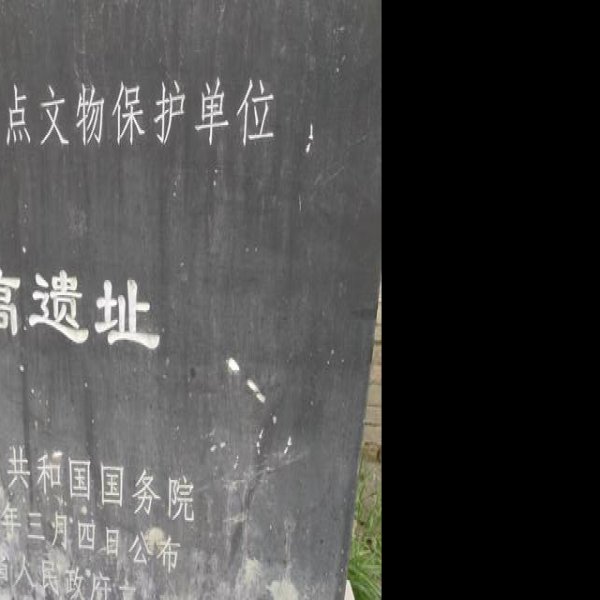 点文物保护单位
高遗址
共和国国务院
年三月四日公布
人民政府立